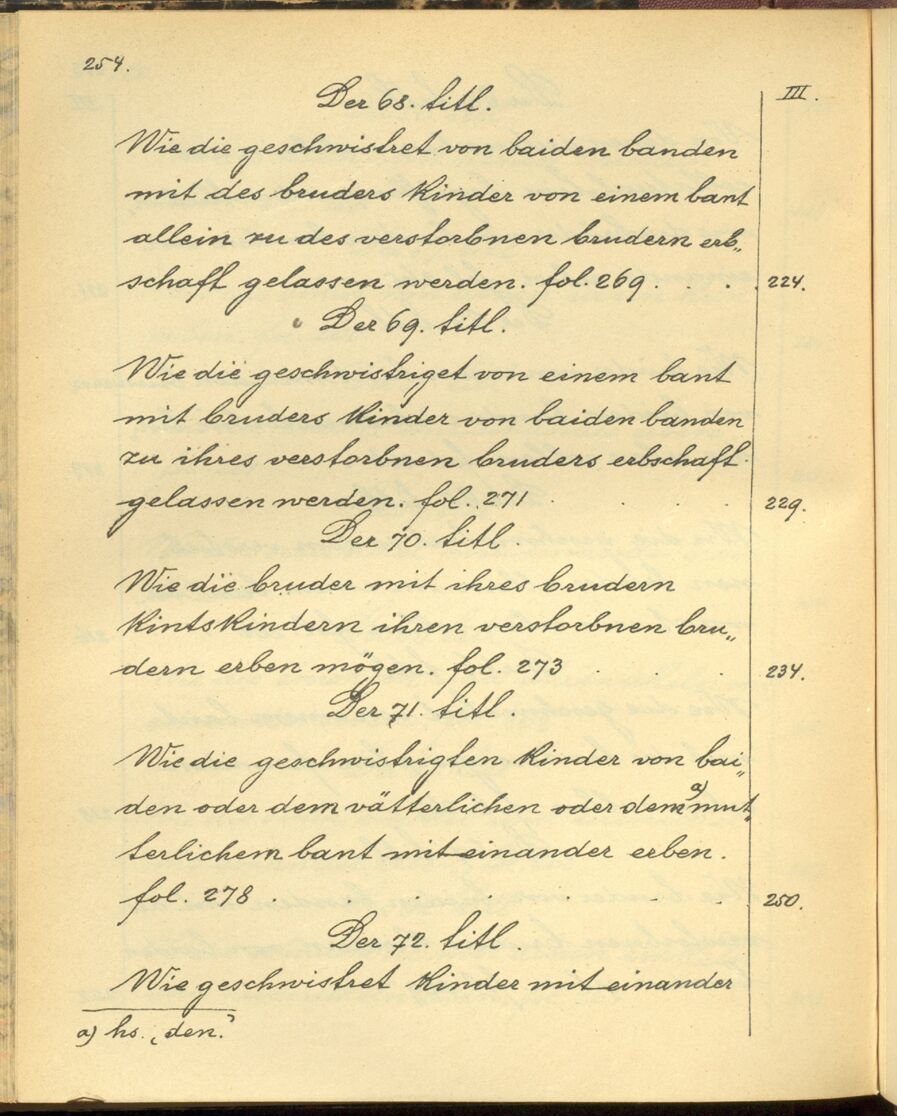 254.
III.
Der 68. titl.
Wie die geschwistret von baiden banden
mit des bruders kinder von einem bant
allein zu des verstorbnen brudern erb„
schaft gelassen werden. fol. 269 . . . . 224.
Der 69. titl.
Wie die geschwistriget von einem bant
mit bruders kinder von baiden banden
zu ihres verstorbnen bruders erbschaft
gelassen werden. fol. 271 . . . . 229.
Der 70. titl
Wie die bruder mit ihres brudern
kintskindern ihren verstorbnen bru„
dern erben mögen. fol. 273 . . . 234.
Der 71. titl.
Wie die geschwistrigten kinder von bai„
den oder dem vätterlichen oder dem a) mut„
terlichem bant miteinander erben.
fol. 278 . . . . . . . 250.
Der 72. titl.
Wie geschwistret kinder miteinander
a) hs. ‚den.‘